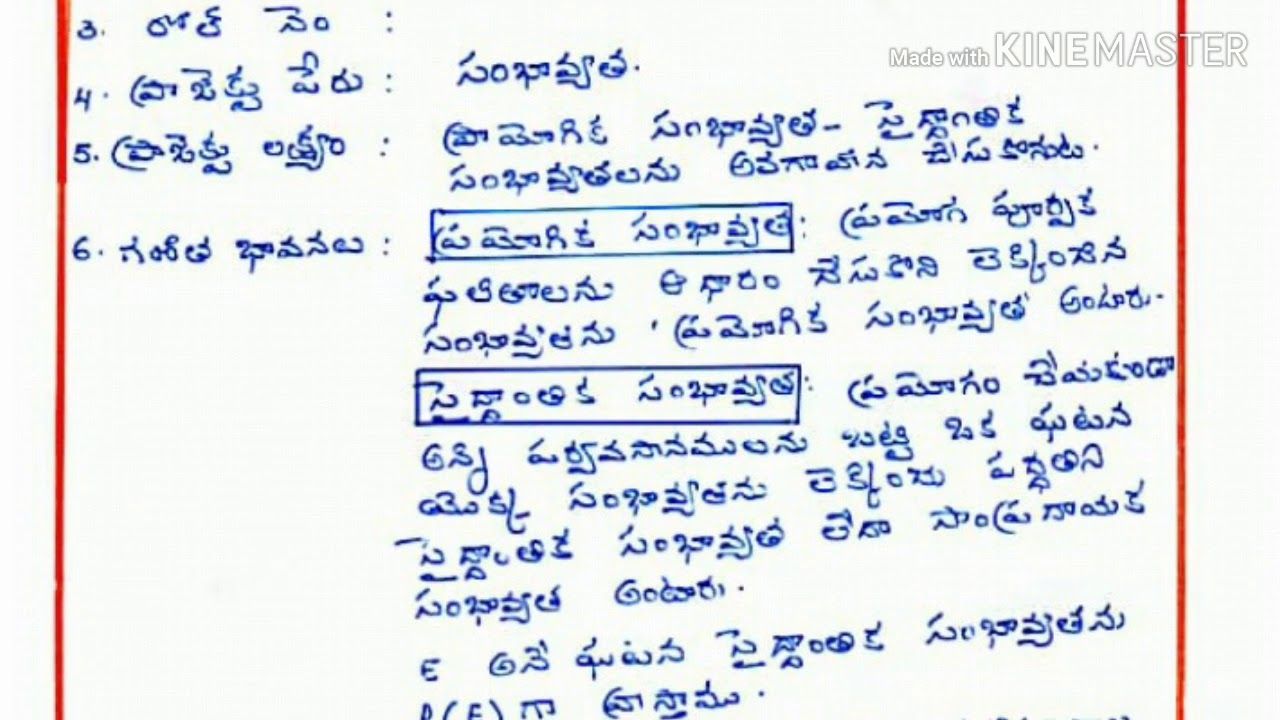 Made with KINEMASTER
3. రోల్ నెం :
4. ప్రాజెక్టు పేరు : సంభావ్యత.
5. ప్రాజెక్టు లక్ష్యం : ప్రాయోగిక సంభావ్యత - సైద్ధాంతిక
సంభావ్యతలను అవగాహన చేసుకొనుట.
6. గణిత భావనలు : ప్రయోగిక సంభావ్యత : ప్రయోగ పూర్వక
ఫలితాలను ఆధారం చేసుకొని లెక్కించిన
సంభావ్యతను 'ప్రయోగిక సంభావ్యత' అంటారు.
సైద్ధాంతిక సంభావ్యత : ప్రయోగం చేయకుండా
అన్ని పర్యవసానములను బట్టి ఒక ఘటన
యొక్క సంభావ్యతను లెక్కించు పద్ధతిని
సైద్ధాంతిక సంభావ్యత లేదా సాంప్రదాయక
సంభావ్యత అంటారు.
E అనే ఘటన సైద్ధాంతిక సంభావ్యతను
P(E) గా వ్రాస్తాము.